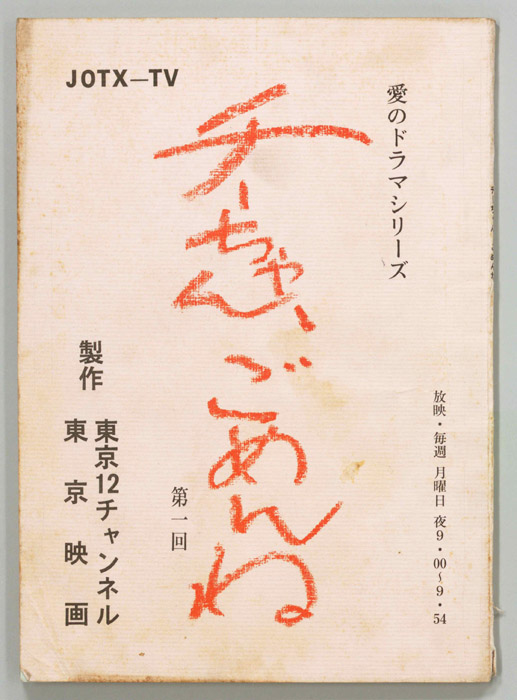 JOTX—TV
愛のドラマシリーズ
チーちゃん、ごめんね
第一回
放映・毎週 月曜日 夜9・00〜9・54
製作
東京12チャンネル
東京映画